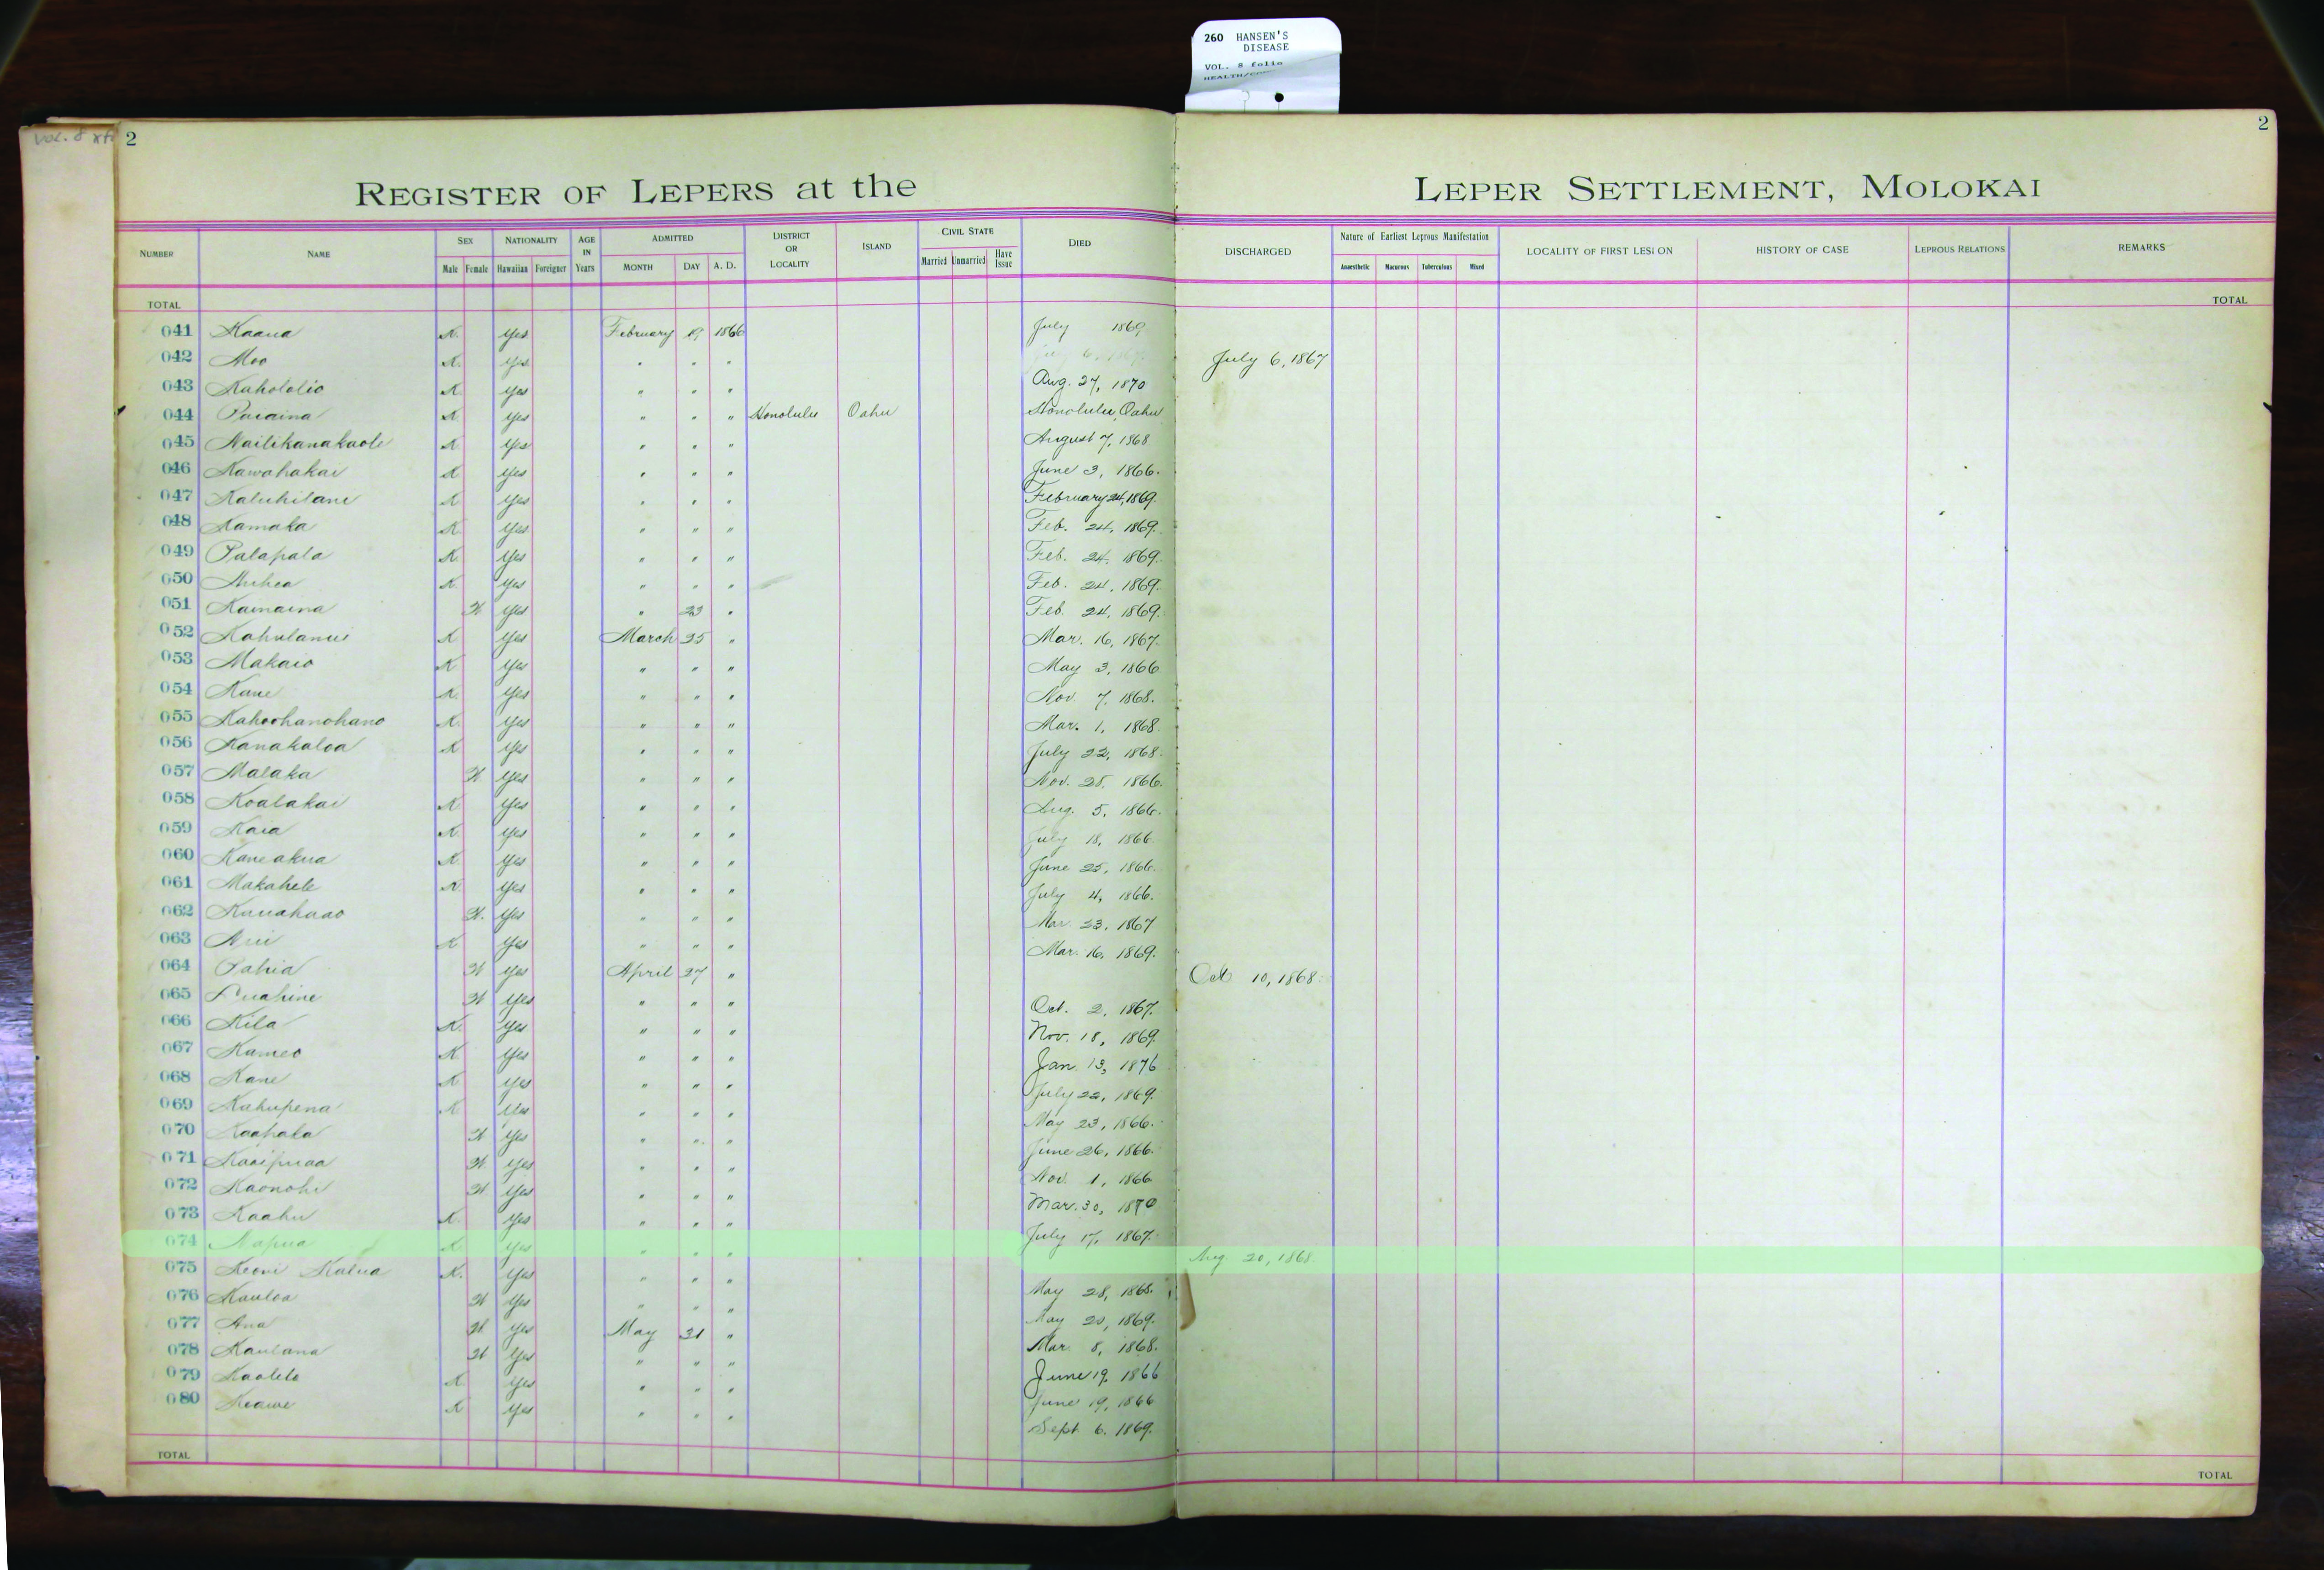 260 HANSEN'S
DISEASE
VOL. 8 folio
Vol. 8
2
2
REGISTER OF LEPERS at the LEPER SETTLEMENT, MOLOKAI
NUMBER NAME SEX NATIONALITY AGE IN Years ADMITTED DISTRICT OR LOCALITY ISLAND CIVIL STATE DIED DISCHARGED Nature of Earliest Leprous Manifestation LOCALITY OF FIRST LESION HISTORY OF CASE LEPROUS RELATIONS REMARKS
Male Female Hawaiian Foreigner MONTH DAY A. D. Married Unmarried Have Issue Anaesthetic Macurous Tuberculous Mixed
TOTAL TOTAL
041 Kaaua K. Yes February 19 1866 July 1869
042 Moo K. Yes " " " July 6, 1867
043 Kahololio K Yes " " " Aug. 27, 1870
044 Puaaina K Yes " " " Honolulu Oahu Honolulu, Oahu
045 Nailikanakaole K Yes " " " August 7, 1868
046 Kawahakai K Yes " " " June 3, 1866.
047 Kaluhilani K Yes " " " February 24, 1869.
048 Kamaka K Yes " " " Feb. 24, 1869.
049 Palapala K. Yes " " " Feb. 24, 1869.
050 Auhea K. Yes " " " Feb. 24, 1869.
051 Kamaina W Yes " 23 " Feb. 24, 1869.
052 Kahulanui K Yes March 25 " Mar. 16, 1867.
053 Makaio K Yes " " " May 3, 1866
054 Kane K. Yes " " " Nov. 7, 1868.
055 Kahoohanohano K. Yes " " " Mar. 1, 1868.
056 Kanakaloa K Yes " " " July 22, 1868.
057 Malaka W Yes " " " Nov. 28, 1866.
058 Koalakai K Yes " " " Aug. 5, 1866.
059 Kaia K. Yes " " " July 18, 1866.
060 Kaneakua K Yes " " " June 25, 1866.
061 Makahele K Yes " " " July 4, 1866.
062 Kauahaao W. Yes " " " Mar. 23, 1867
063 Aui K Yes " " " Mar. 16, 1869.
064 Pahia W Yes April 27 " Oct 10, 1868.
065 Puahine W Yes " " " Oct. 2, 1867.
066 Kila K. Yes " " " Nov. 18, 1869.
067 Kameo K Yes " " " Jan 13, 1876
068 Kane K Yes " " " July 22, 1869.
069 Kahupena K Yes " " " May 23, 1866.
070 Kaahala W Yes " " " June 26, 1866.
071 Kaaipuaa W. Yes " " " Nov. 1, 1866
072 Kaonohi W Yes " " " Mar. 30, 1870
073 Kaahu K. Yes " " " July 17, 1867.
074 Napua K. Yes " " " Aug. 20, 1868.
075 Keoni Kalua K. Yes " " " May 28, 1868.
076 Kauloa W Yes " " " May 20, 1869.
077 Ana W. Yes May 31 " Mar. 8, 1868.
078 Kaulana W Yes " " " June 19, 1866
079 Kaolelo K. Yes " " " June 19, 1866
080 Keawe K Yes " " " Sept. 6. 1869.
TOTAL TOTAL